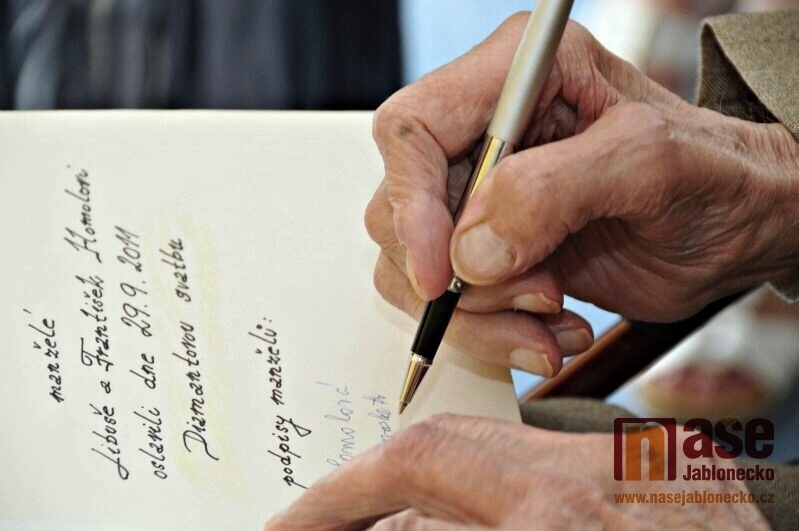 manželé
Libuše a František Homolovi
oslavili dne 29.9.2011
Diamantovou svatbu
podpisy manželů:
Homolová
naše
Jablonecko
www.nasejablonecko.cz